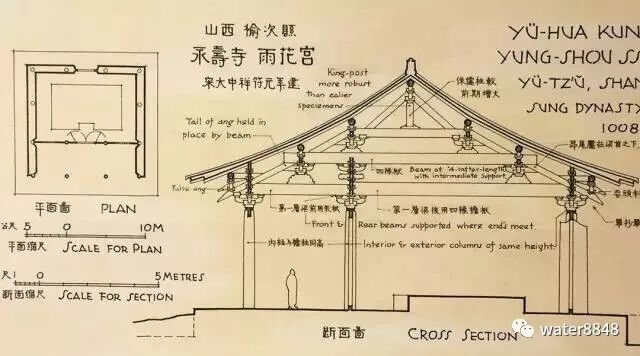 山西 榆次縣
永壽寺 雨花宮
宋大中祥符元年建
YÜ-HUA KUN
YUNG-SHOU SS
YÜ-TZ'Ŭ, SHAN
SUNG DYNASTY
1008
King-post
more robust
than ealier
specimens
侏儒柱較
前期增大
Tail of ang held in
place by beam
昂尾壓在梁首之下
四椽栿
Beam of "4-rafter-length"
with intermediate support
False ang
第一層梁前用乳栿
Front & Rear beams supported where ends meet.
内柱与檐柱同高
Interior & exterior columns of same height.
平面圖 PLAN
公尺 5 0 10M
平面縮尺 SCALE FOR PLAN
尺 1 0 5 METRES
断面縮尺 SCALE FOR SECTION
断面圖 CROSS SECTION
water8848